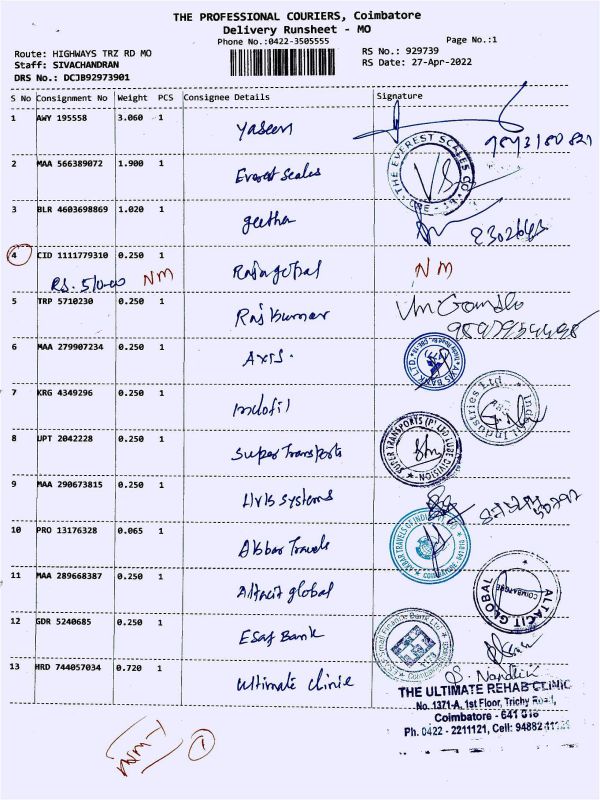 THE PROFESSIONAL COURIERS, Coimbatore
Delivery Runsheet - MO
Phone No.:0422-3505555
Page No.:1
Route: HIGHWAYS TRZ RD MO
RS No.: 929739
Staff: SIVACHANDRAN
RS Date: 27-Apr-2022
DRS No.: DCJB92973901
S No Consignment No Weight PCS Consignee Details Signature
1 AWY 195558 3.060 1 Yaseen
2 MAA 566389072 1.900 1 Everest Scales
THE EVEREST SCALES CO.
3 BLR 4603698869 1.020 1 geetha
4 CID 1111779310 0.250 1 Rajagopal NM
RS. 510-00 NM
5 TRP 5710230 0.250 1 Rajkumar
6 MAA 279907234 0.250 1 Axis.
AXIS BANK LTD.
7 KRG 4349296 0.250 1 indofil
Indofil Industries Ltd
8 UPT 2042228 0.250 1 Super Transports
SUPER TRANSPORTS (P) LTD LUBE DIVISION
9 MAA 290673815 0.250 1 Livis Systems
10 PRO 13176328 0.065 1 Akbar Travels
AKBAR TRAVELS OF INDIA COIMBATORE
11 MAA 289668387 0.250 1 Altacit global
ALTACIT GLOBAL COIMBATORE
12 GDR 5240685 0.250 1 ESAF Bank
Small Finance Bank Ltd
13 HRD 744057034 0.720 1 ultimate clinic
S. Nandhini
THE ULTIMATE REHAB CLINIC
No. 1371-A, 1st Floor, Trichy Road,
Coimbatore - 641 018
Ph. 0422 - 2211121, Cell:
1